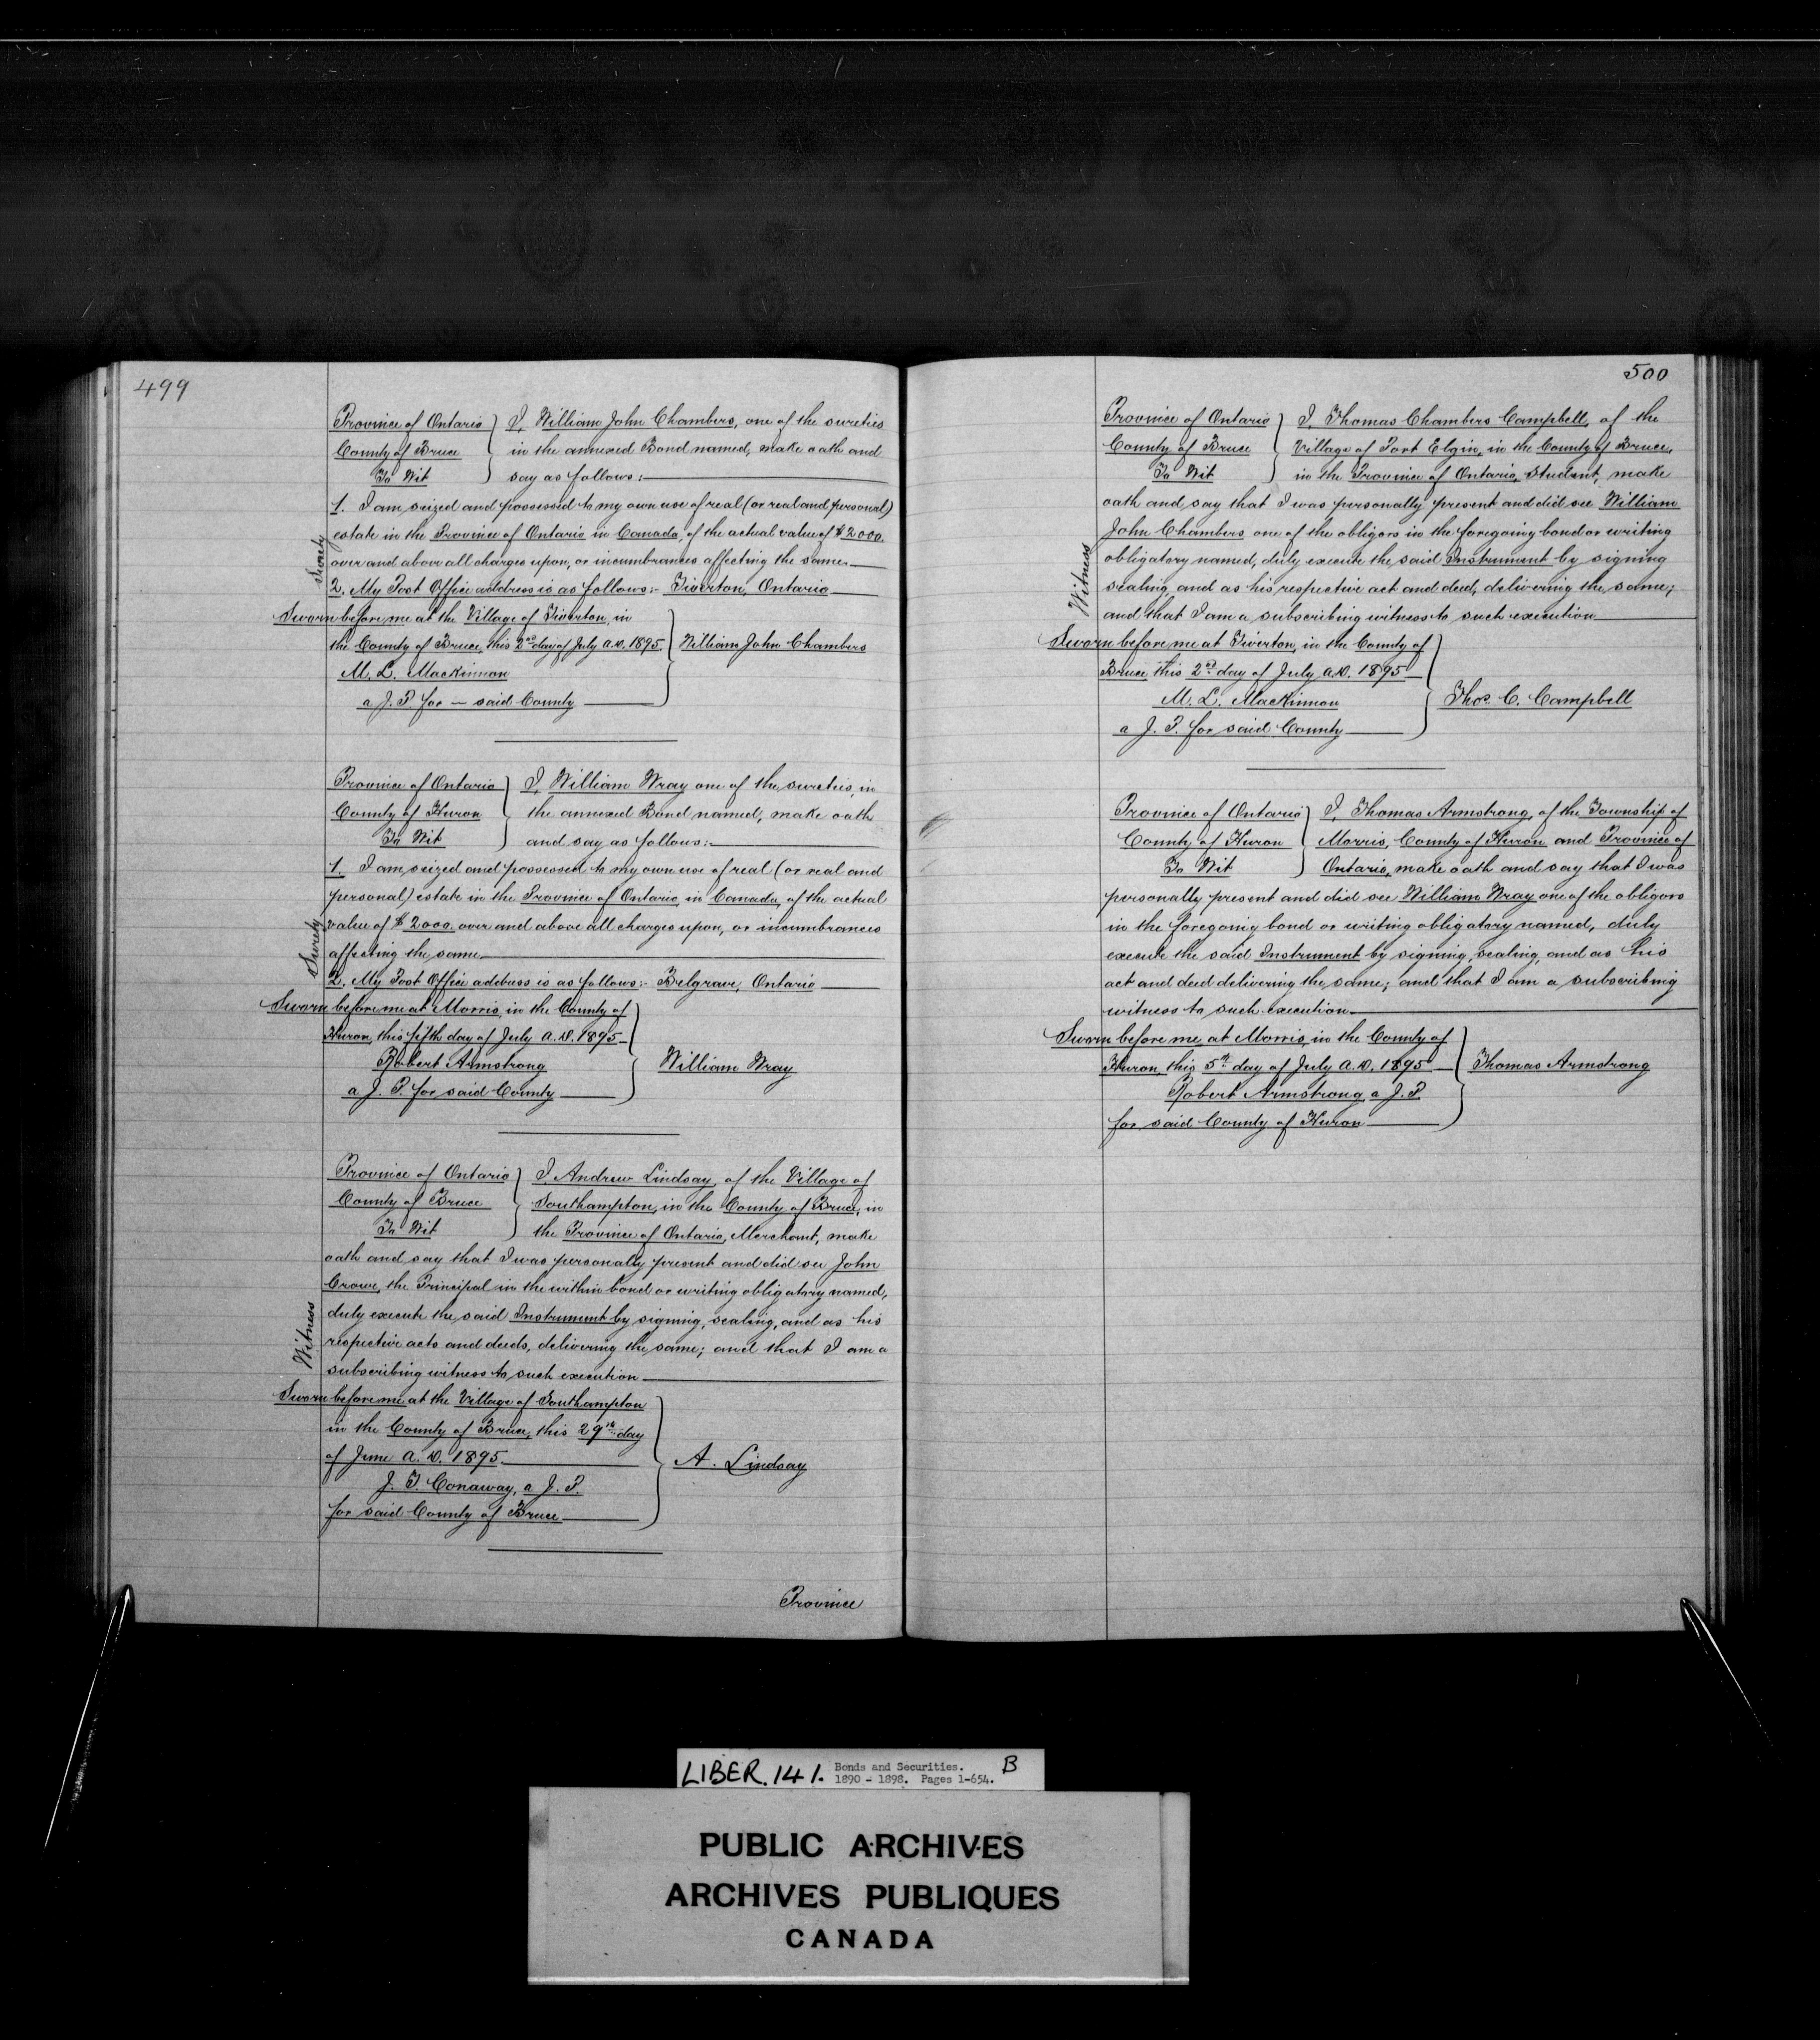 499
Province of Ontario } I, William John Chambers, one of the sureties
County of Bruce } in the annexed Bond named, make oath and
To Wit } say as follows:
1. I am seized and possessed to my own use of real (or real and personal)
estate in the Province of Ontario in Canada, of the actual value of $2000.
over and above all charges upon, or incumbrances affecting the same.
Surety
2. My Post Office address is as follows:- Tiverton, Ontario
Sworn before me at the Village of Tiverton, in
the County of Bruce, this 2nd day of July A.D. 1895. } William John Chambers
M. L. MacKinnon
a J. P. for — said County
Province of Ontario } I, William Wray one of the sureties, in
County of Huron } the annexed Bond named, make oath
To Wit } and say as follows:
1. I am seized and possessed to my own use of real (or real and
personal) estate in the Province of Ontario, in Canada, of the actual
value of $2000. over and above all charges upon, or incumbrances
affecting the same
Surety
2. My Post Office address is as follows:- Belgrave, Ontario
Sworn before me at Morris, in the County of
Huron, this fifth day of July A.D. 1895
Robert Armstrong } William Wray
a J. P. for said County
Province of Ontario } I Andrew Lindsay, of the Village of
County of Bruce } Southampton, in the County of Bruce, in
To Wit } the Province of Ontario, Merchant, make
oath and say that I was personally present and did see John
Crowe, the Principal in the within bond or writing obligatory named,
duly execute the said Instrument by signing, sealing, and as his
respective acts and deeds, delivering the same; and that I am a
subscribing witness to such execution
Witness
Sworn before me at the Village of Southampton
in the County of Bruce, this 29th day
of June A.D. 1895 } A. Lindsay
J. T. Conaway, a J. P.
for said County of Bruce
Province
500
Province of Ontario } I, Thomas Chambers Campbell, of the
County of Bruce } Village of Port Elgin, in the County of Bruce,
To Wit } in the Province of Ontario, Student, make
oath and say that I was personally present and did see William
John Chambers one of the obligors in the foregoing bond or writing
obligatory named, duly execute the said Instrument by signing
sealing, and as his respective act and deed, delivering the same;
and that I am a subscribing witness to such execution
Witness
Sworn before me at Tiverton, in the County of
Bruce, this 2nd day of July A.D. 1895
M. L. MacKinnon } Thos. C. Campbell
a J. P. for said County
Province of Ontario } I, Thomas Armstrong, of the Township of
County of Huron } Morris, County of Huron and Province of
To Wit } Ontario, make oath and say that I was
personally present and did see William Wray one of the obligors
in the foregoing bond or writing obligatory named, duly
execute the said Instrument by signing, sealing, and as his
act and deed delivering the same; and that I am a subscribing
witness to such execution
Sworn before me at Morris, in the County of
Huron, this 5th day of July A.D. 1895 } Thomas Armstrong
Robert Armstrong, a J. P.
for said County of Huron
LIBER. 141. Bonds and Securities. B
1890 - 1898. Pages 1-654.
PUBLIC ARCHIVES
ARCHIVES PUBLIQUES
CANADA